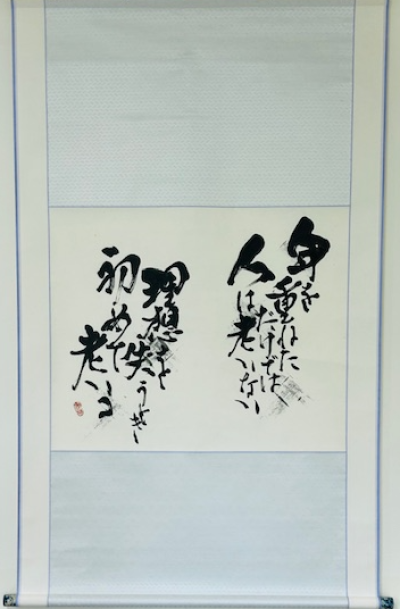 年を重ねただけでは
人は老いない
理想を失うとき
初めて老いる